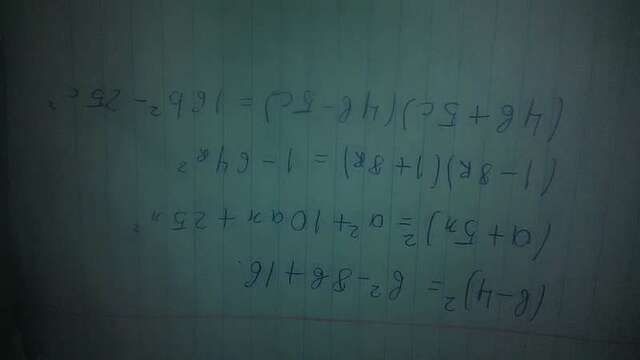 (b-4)² = b²-8b+16.
(a+5x)² = a²+10ax+25x²
(1-8k)(1+8k) = 1-64k²
(4b+5c)(4b-5c) = 16b²-25c²